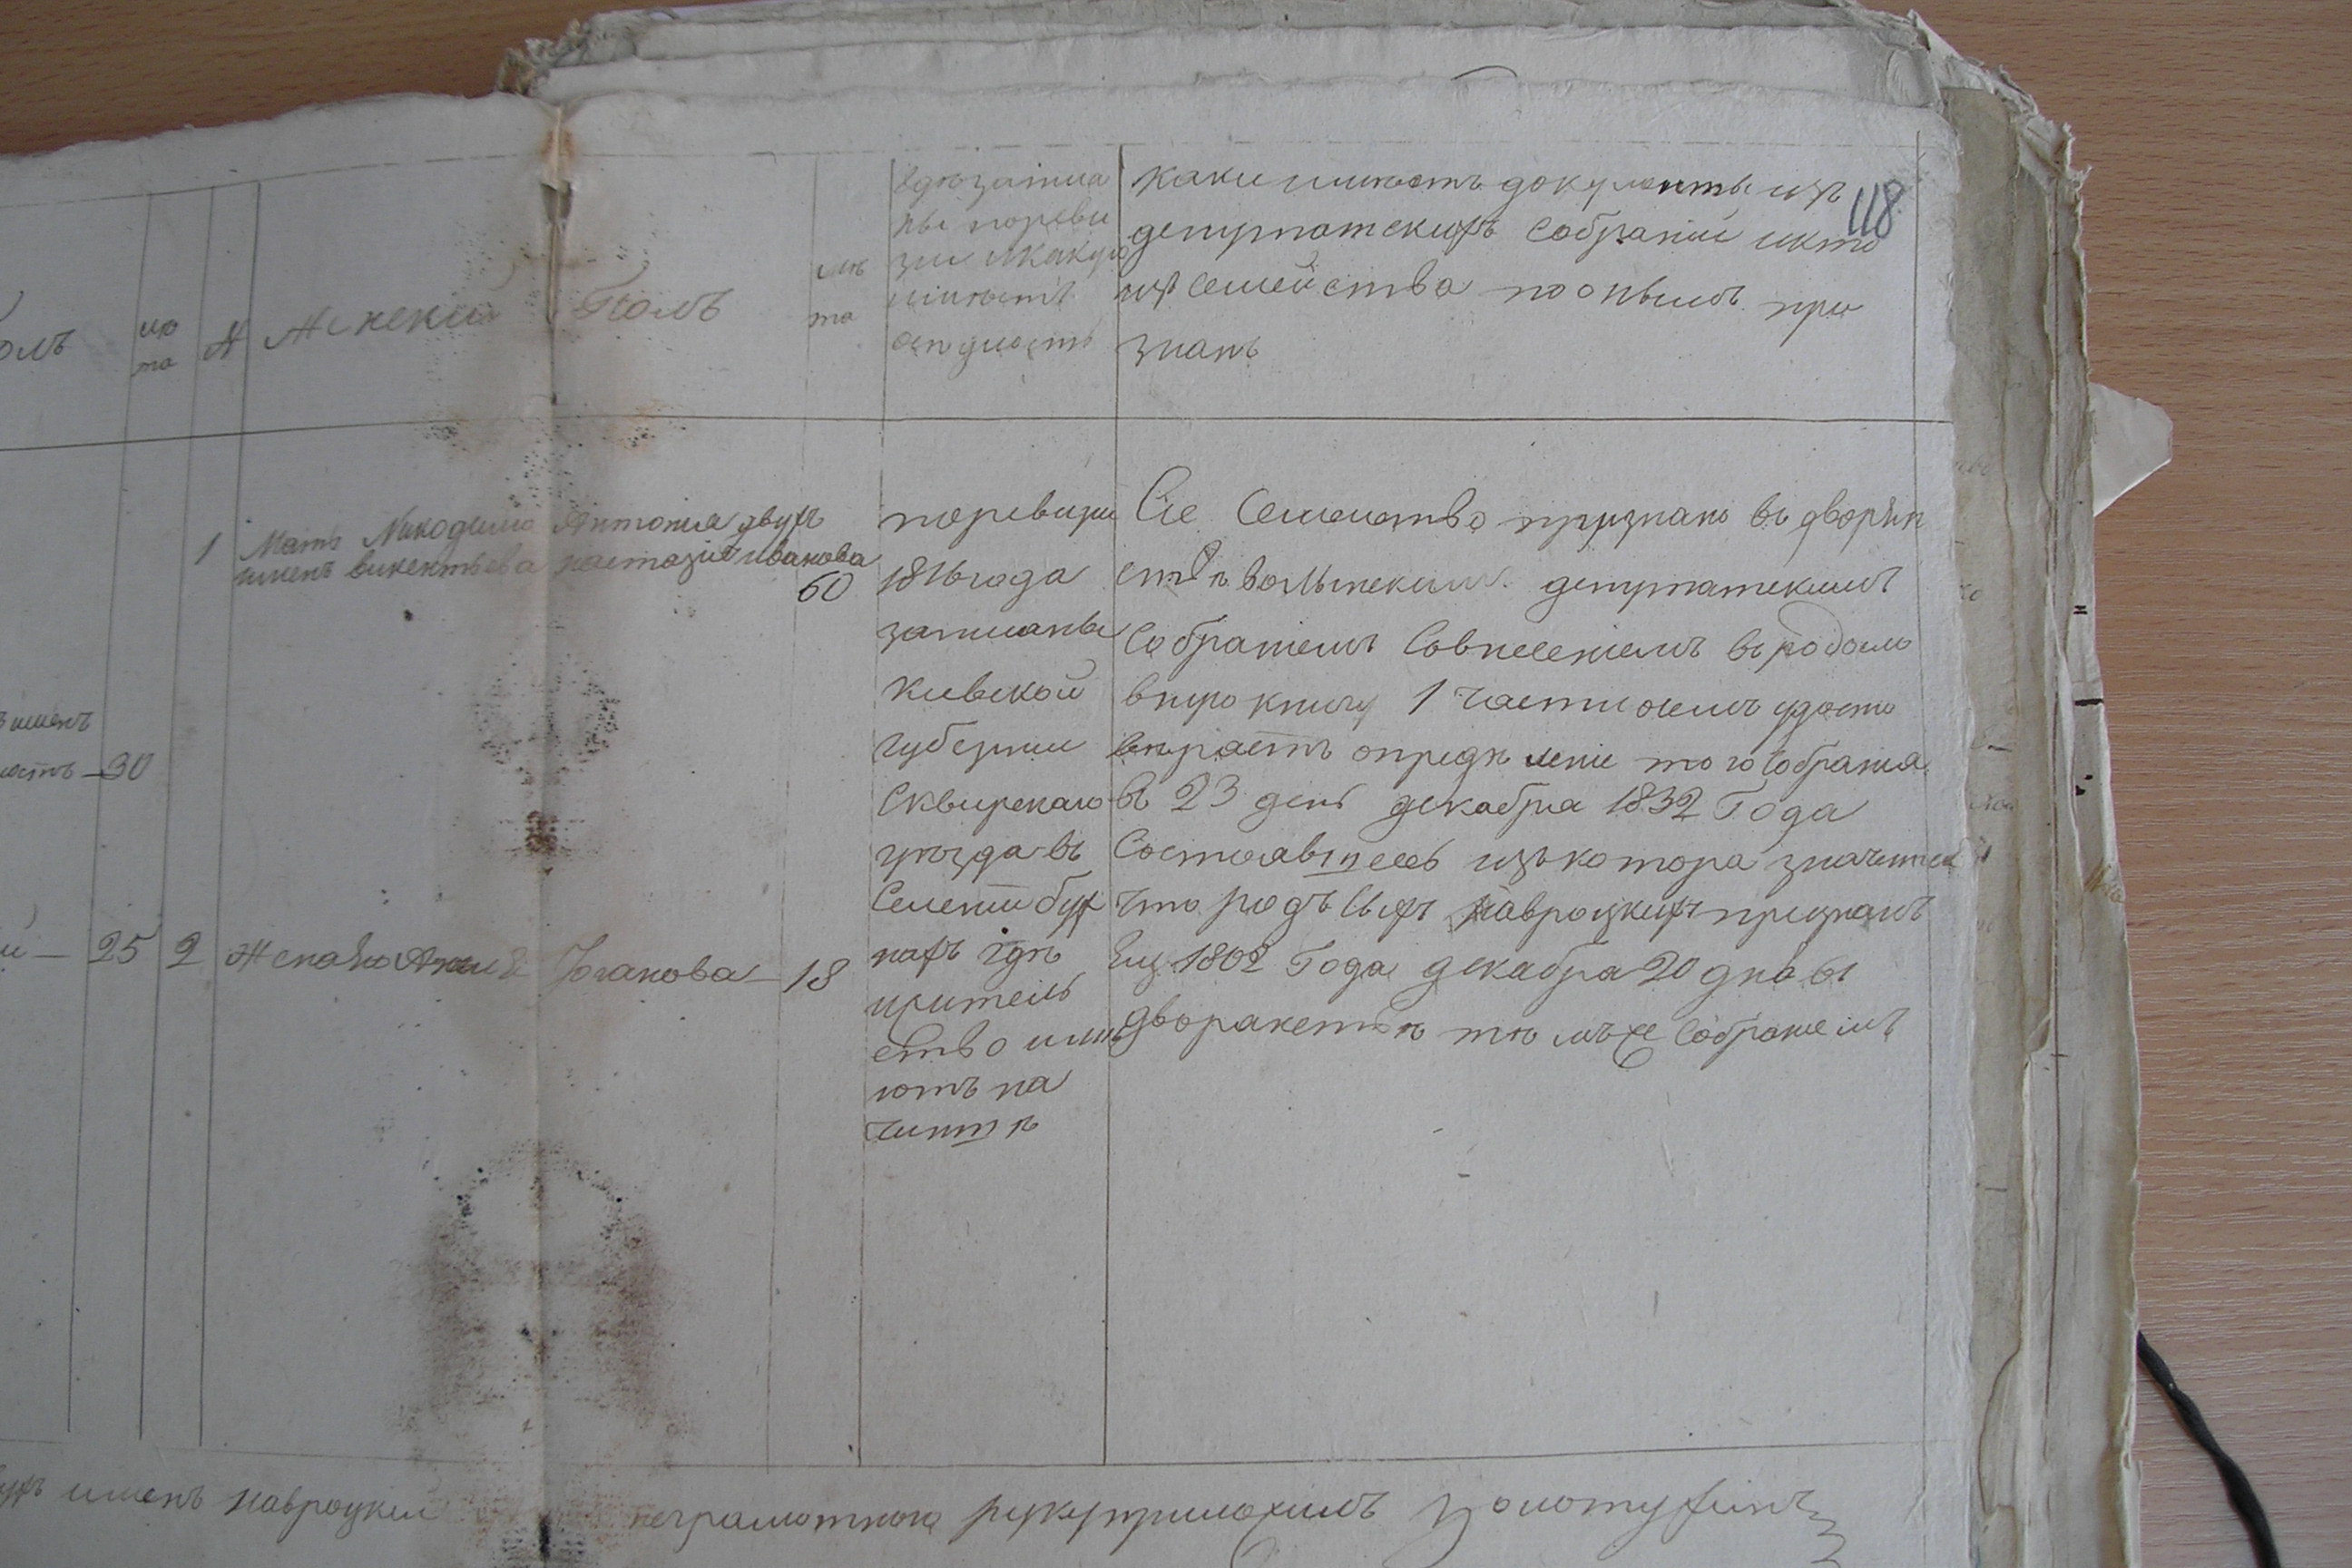 118
олъ
лѣ
та
№
Женскій Полъ
лѣ
та
Где записа
ны поревы
зіи икакую
имѣетъ
осѣдлость
какіи имѣетъ документы изъ
депутатскихъ собраній икто
изъ семейства пооныхъ при
знанъ
1
Мать Никодима Антонія двухъ
именъ викентьева настазія иванова
60
именъ
30
25
2
жена его Юганова — 18
поревизіи
1816 года
записаны
Кіевской
губерніи
Сквирскаго
уѣзда въ
нахъ гдѣ
жытель
ство имѣ
ютъ на
чиншѣ
Сіе Семейство признано въ дворян
ствѣ волынскимъ депутатскимъ
Собраніемъ Совнесеніемъ въ родосло
вную книгу 1 части очемъ удосто
вѣраетъ опредѣленіе того Собранія
въ 23 день декабря 1832 Года
Состоявшееся изъ котора значится
что родъ Сихъ Навроцкихъ признанъ
Ещ 1802 Года декабря 20 дня въ
дворанствѣ тѣмъже Собраніемъ
ухъ именъ Навроцкій неграмотного рукуприложилъ Золотухинъ